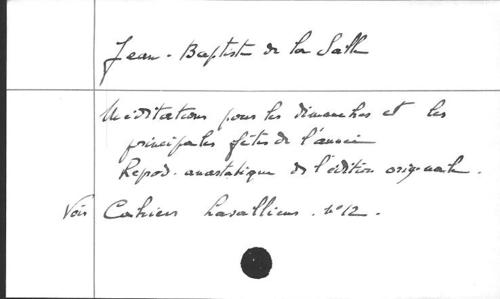 Jean-Baptiste de la Salle
Méditations pour les dimanches et les
principales fêtes de l'année
Reprod. anastatique de l'édition originale.
Voir Cahiers Lasalliens. n° 12.